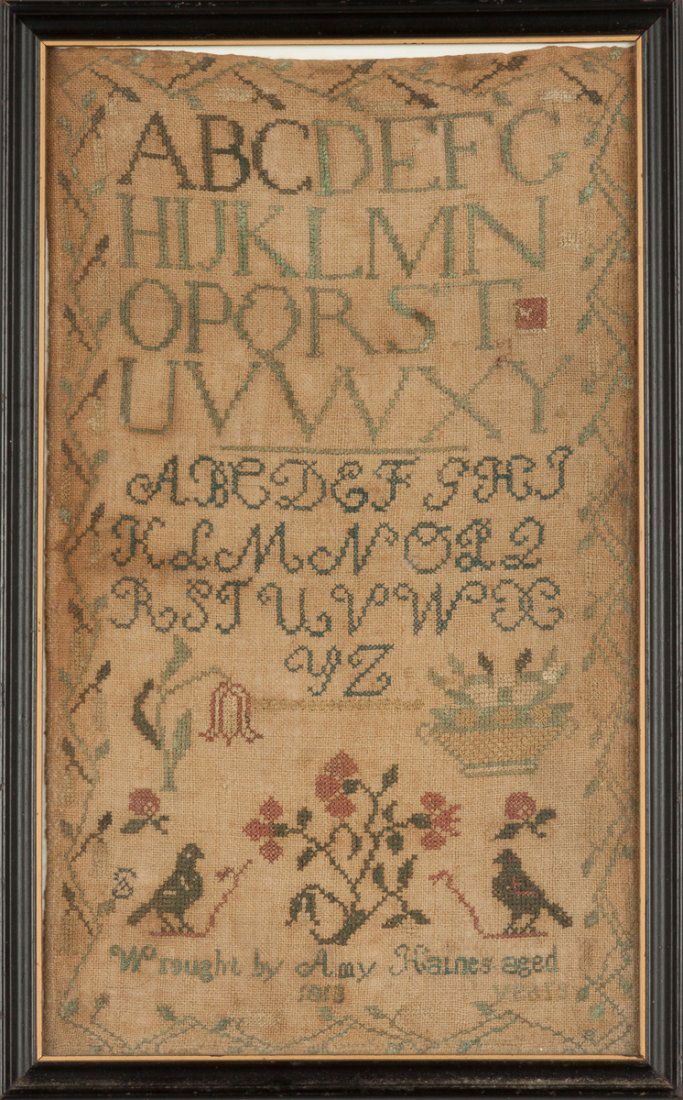 ABCDEFG
HIJKLMN
OPQRST
UVWXY
ABCDEFGHI
KLMNOPQ
RSTUVWX
YZ
Wrought by Amy Haines aged
years